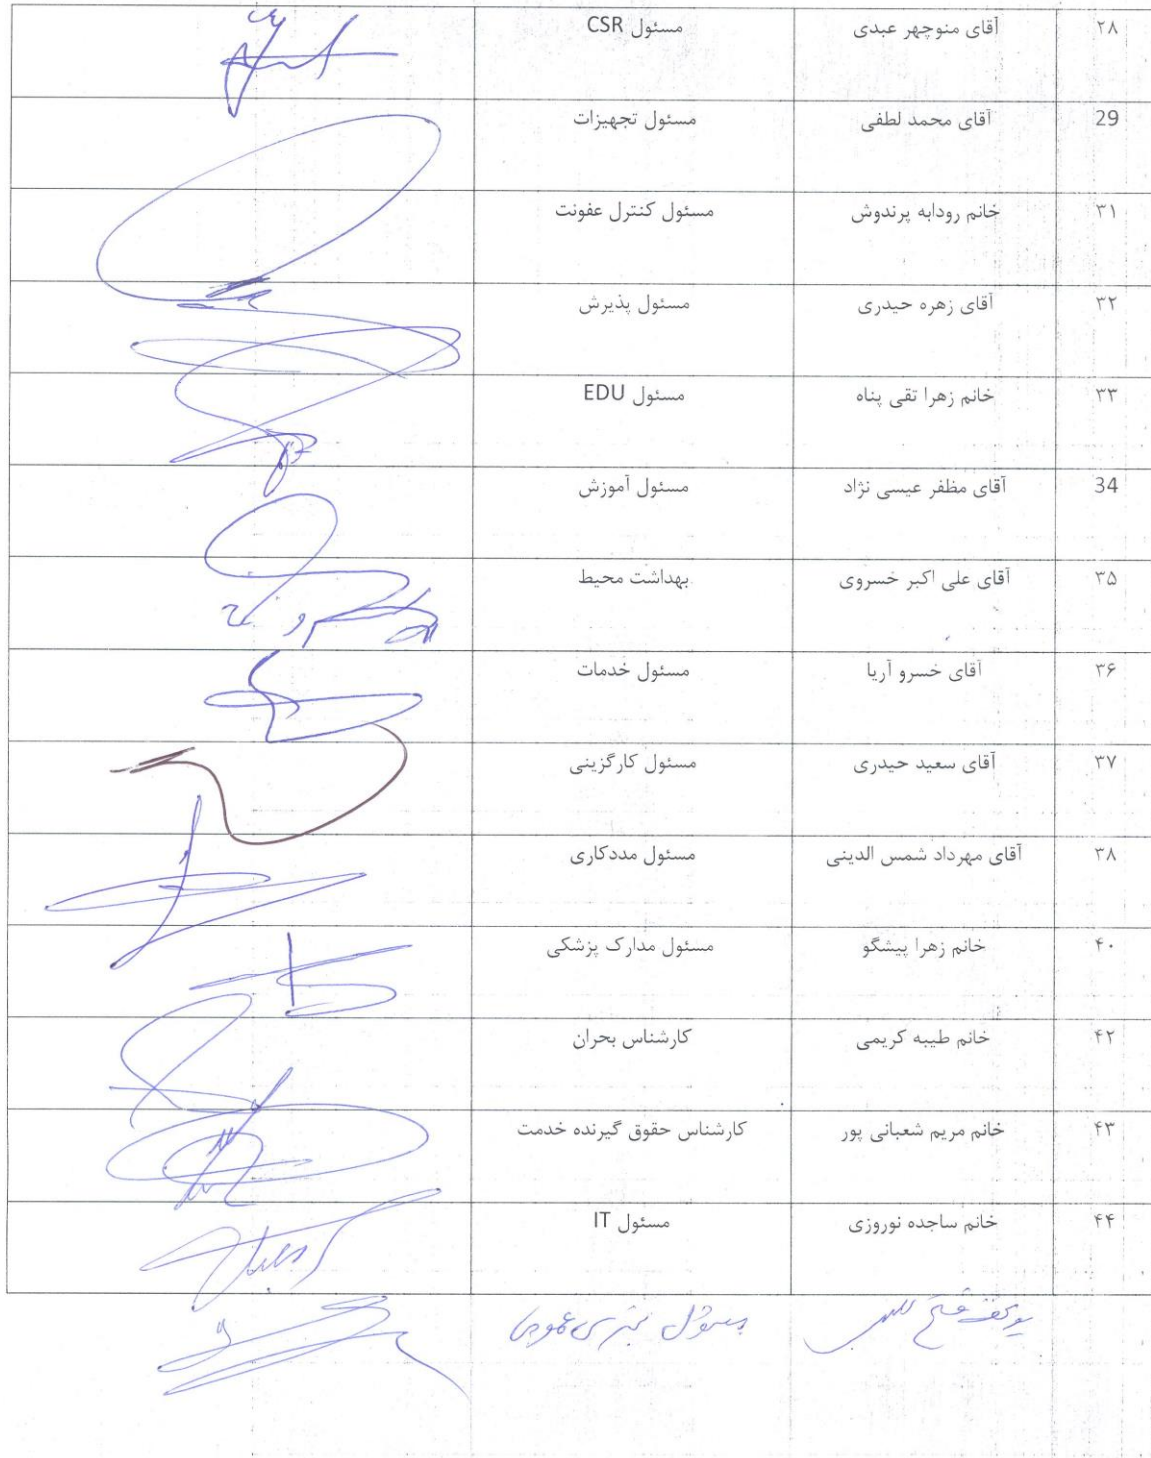 ۲۸ آقای منوچهر عبدی مسئول CSR
29 آقای محمد لطفی مسئول تجهیزات
۳۱ خانم رودابه پرندوش مسئول کنترل عفونت
۳۲ آقای زهره حیدری مسئول پذیرش
۳۳ خانم زهرا تقی پناه مسئول EDU
34 آقای مظفر عیسی نژاد مسئول آموزش
۳۵ آقای علی اکبر خسروی بهداشت محیط
۳۶ آقای خسرو آریا مسئول خدمات
۳۷ آقای سعید حیدری مسئول کارگزینی
۳۸ آقای مهرداد شمس الدینی مسئول مددکاری
۴۰ خانم زهرا پیشگو مسئول مدارک پزشکی
۴۲ خانم طیبه کریمی کارشناس بحران
۴۳ خانم مریم شعبانی پور کارشناس حقوق گیرنده خدمت
۴۴ خانم ساجده نوروزی مسئول IT
مسئول